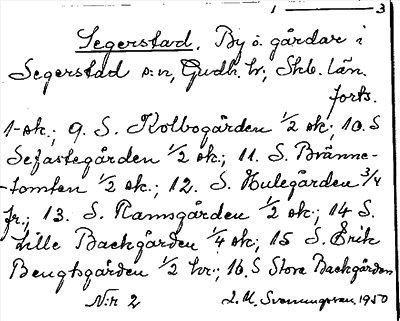 1 — 3
Segerstad. By o. gårdar i
Segerstad s:n, Gudh. hr; Skb. län.
forts.
1-sk.; 9. S. Kolbogården 1/2 sk; 10. S
Sefastegården 1/2 sk; 11. S. Bränne-
-tomten 1/2 sk.; 12. S. Hulegården 3/4
fr.; 13. S. Ramsgården 1/2 sk; 14 S.
Lille Backgården 1/4 sk; 15 S. Erik
Bengtsgården 1/2 hr; 16. S Stora Backgården
N:r 2 L. M. Svenungsson 1950